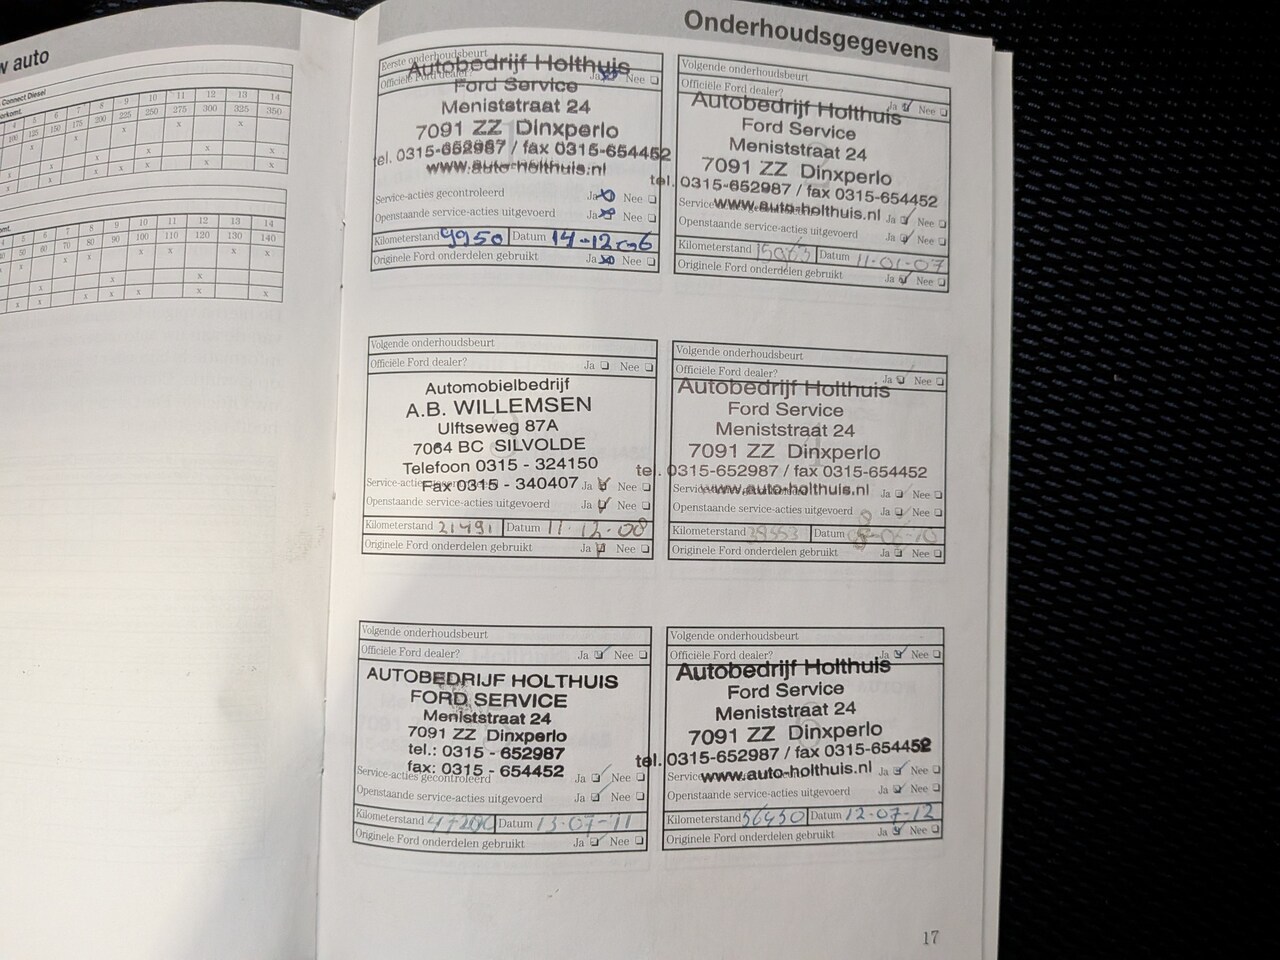 w auto
Connect Diesel
4 5 6 7 8 9 10 11 12 13 14
100 125 150 175 200 225 250 275 300 325 350
4 5 6 7 8 9 10 11 12 13 14
40 50 60 70 80 90 100 110 120 130 140
Onderhoudsgegevens
Eerste onderhoudsbeurt
Officiële Ford dealer? Ja Nee
Autobedrijf Holthuis
Ford Service
Meniststraat 24
7091 ZZ Dinxperlo
tel. 0315-652987 / fax 0315-654452
www.auto-holthuis.nl
Service-acties gecontroleerd Ja Nee
Openstaande service-acties uitgevoerd Ja Nee
Kilometerstand 9950 Datum 14-12-06
Originele Ford onderdelen gebruikt Ja Nee
Volgende onderhoudsbeurt
Officiële Ford dealer? Ja Nee
Autobedrijf Holthuis
Ford Service
Meniststraat 24
7091 ZZ Dinxperlo
tel. 0315-652987 / fax 0315-654452
www.auto-holthuis.nl
Service Ja Nee
Openstaande service-acties uitgevoerd Ja Nee
Kilometerstand Datum 11-01-07
Originele Ford onderdelen gebruikt Ja Nee
Volgende onderhoudsbeurt
Officiële Ford dealer? Ja Nee
Automobielbedrijf
A.B. WILLEMSEN
Ulftseweg 87A
7064 BC SILVOLDE
Telefoon 0315 - 324150
Fax 0315 - 340407
Service-acties Ja Nee
Openstaande service-acties uitgevoerd Ja Nee
Kilometerstand 21491 Datum 11-12-08
Originele Ford onderdelen gebruikt Ja Nee
Volgende onderhoudsbeurt
Officiële Ford dealer? Ja Nee
Autobedrijf Holthuis
Ford Service
Meniststraat 24
7091 ZZ Dinxperlo
tel. 0315-652987 / fax 0315-654452
www.auto-holthuis.nl
Ja Nee
Openstaande service-acties uitgevoerd Ja Nee
Kilometerstand Datum
Originele Ford onderdelen gebruikt Ja Nee
Volgende onderhoudsbeurt
Officiële Ford dealer? Ja Nee
AUTOBEDRIJF HOLTHUIS
FORD SERVICE
Meniststraat 24
7091 ZZ Dinxperlo
tel.: 0315 - 652987
fax: 0315 - 654452
Service-acties gecontroleerd Ja Nee
Openstaande service-acties uitgevoerd Ja Nee
Kilometerstand Datum 13-07-11
Originele Ford onderdelen gebruikt Ja Nee
Volgende onderhoudsbeurt
Officiële Ford dealer? Ja Nee
Autobedrijf Holthuis
Ford Service
Meniststraat 24
7091 ZZ Dinxperlo
tel. 0315-652987 / fax 0315-654452
www.auto-holthuis.nl
Service Ja Nee
Openstaande service-acties uitgevoerd Ja Nee
Kilometerstand 56450 Datum 12-07-12
Originele Ford onderdelen gebruikt Ja Nee
17